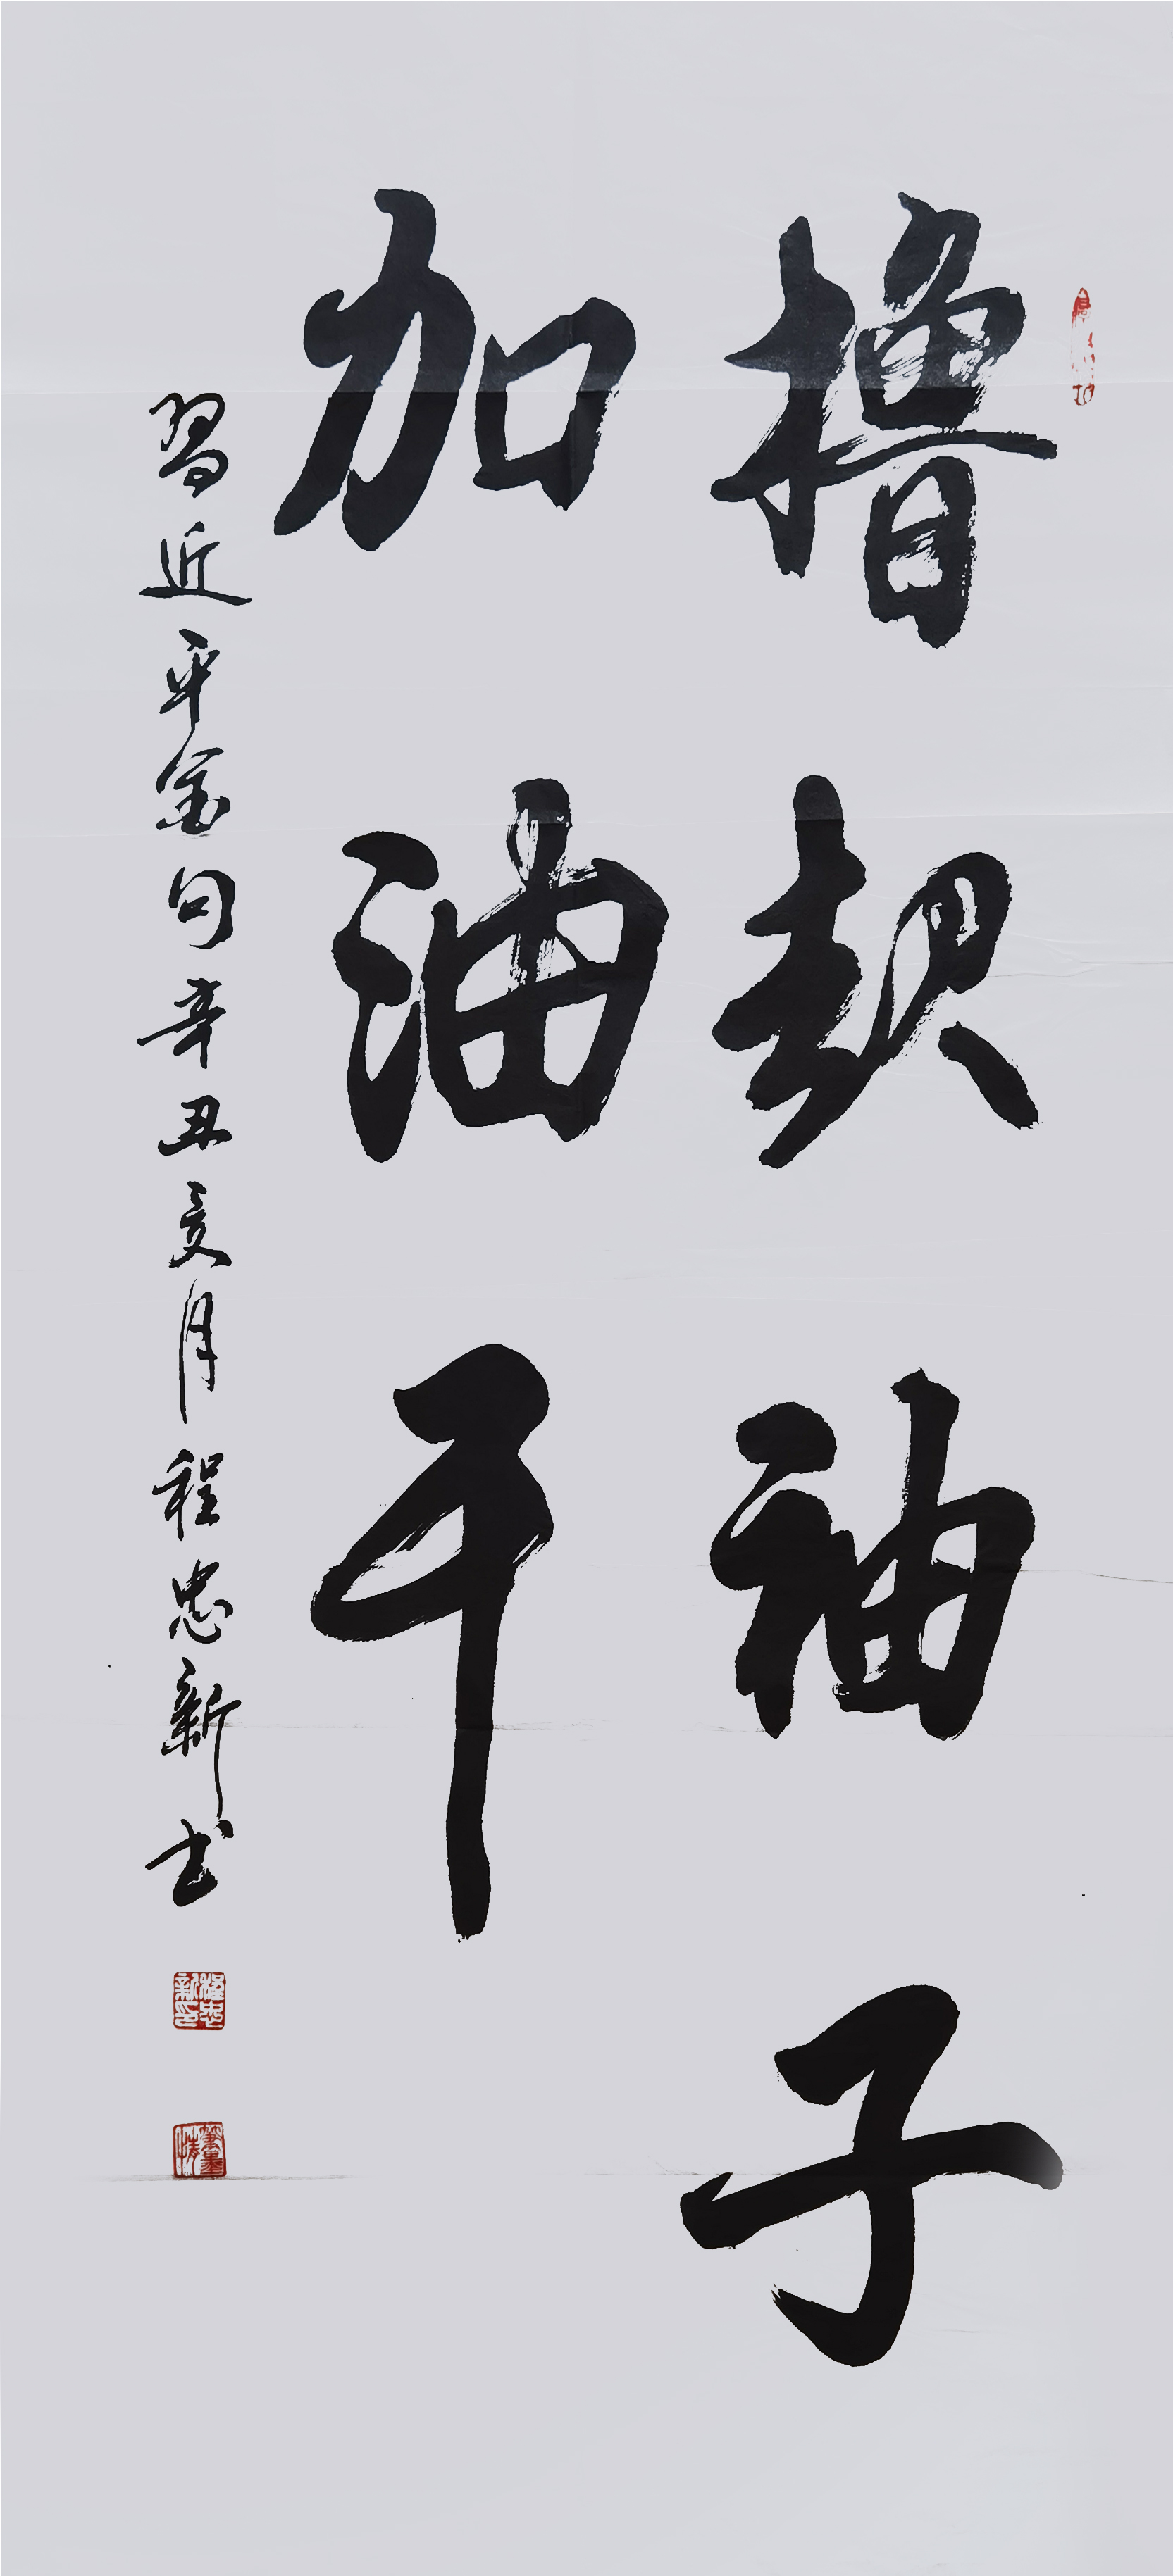 撸起袖子
加油干
習近平金句辛丑夏月程忠新书
程忠新印
笔墨情